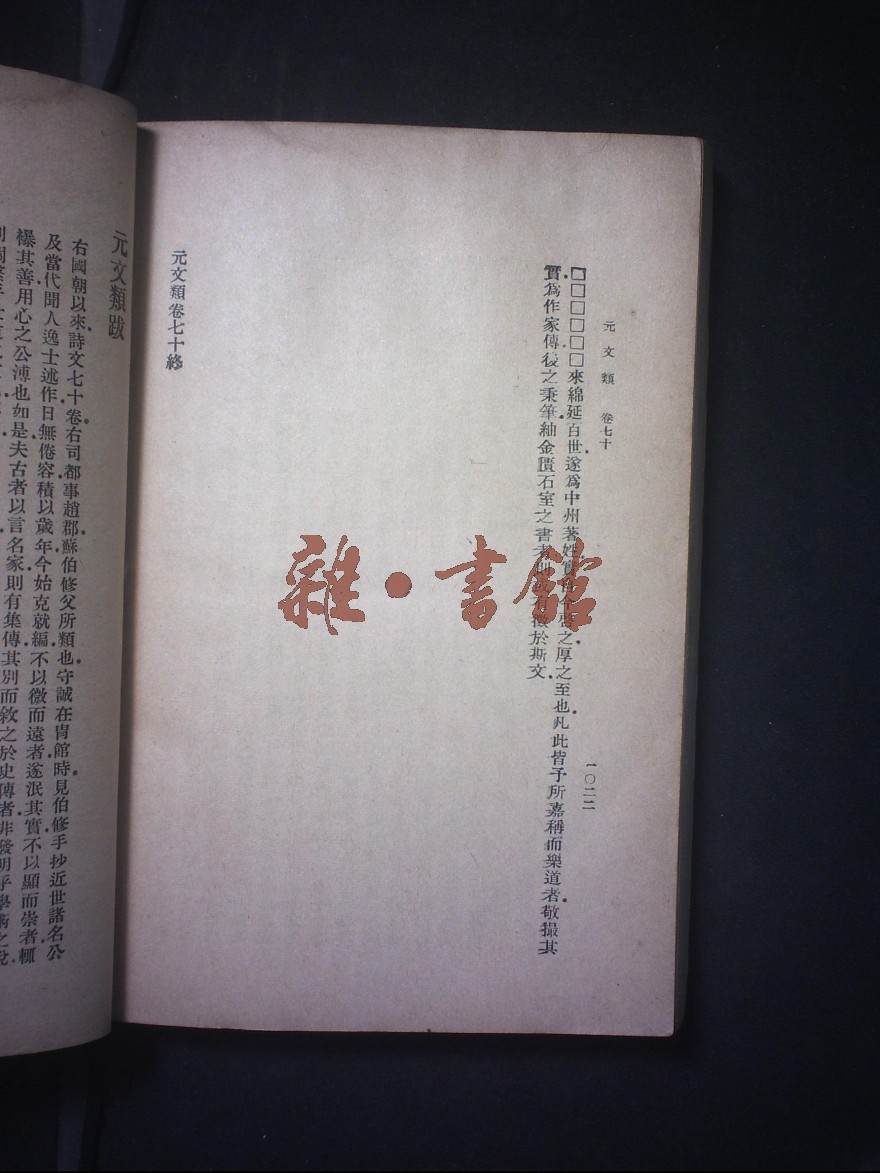 元文類 卷七十
一〇二二
□□□□□□來綿延百世遂爲中州著姓實
之厚之至也凡此皆予所嘉稱而樂道者敬撮其
實爲作家傳後之秉筆紬金匱石室之書者則
於斯文
元文類卷七十終
元文類跋
右國朝以來詩文七十卷右司都事趙郡蘇伯修父所類也守誠在胄館時見伯修手抄近世諸名公
及當代聞人逸士述作日無倦容積以歲年今始克就編不以微而遠者遂泯其實不以顯而崇者輒
襮其善用心之公溥也如是夫古者以言名家則有集傳其別而敘之於史傳者非發明乎學術之
雜·書館